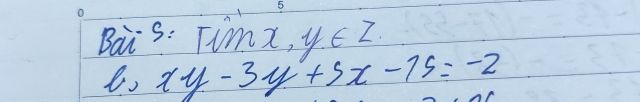 0 5
Bài 5: Tìm x, y ∈ Z.
b, xy - 3y + 5x - 15 = -2